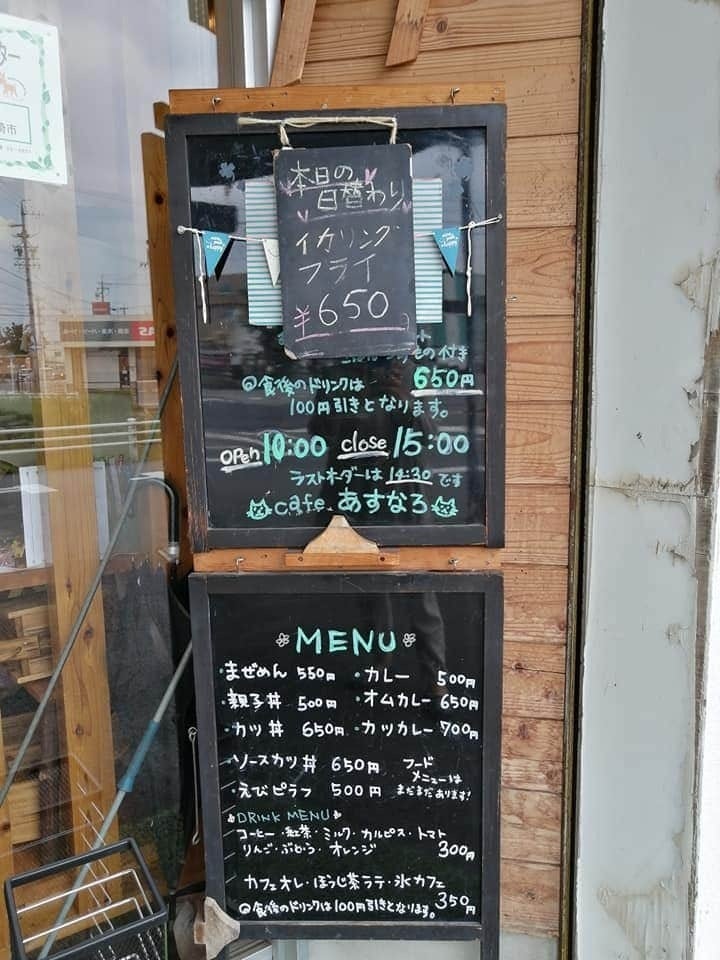 本日の
日替わり
イカリング
フライ
¥650
の付き
650円
@食後のドリンクは
100円引きとなります。
open 10:00 close 15:00
ラストオーダーは 14:30 です
cafe あすなろ
MENU
・まぜめん 550円
・親子丼 500円
・カツ丼 650円
・ソースカツ丼 650円
・えびピラフ 500円
・カレー 500円
・オムカレー 650円
・カツカレー 700円
フード
メニューは
まだまだあります!
DRINK MENU
コーヒー・紅茶・ミルク・カルピス・トマト
りんご・ぶどう・オレンジ 300円
カフェオレ・ほうじ茶ラテ・氷カフェ 350円
@食後のドリンクは100円引きとなります。